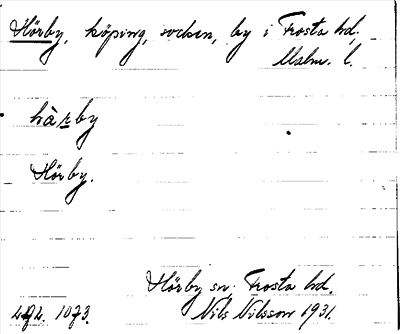 Hörby, köping, socken, by i Frosta hd.
Malm. l.
hàrby
Hörby.
Hörby sn. Frosta hd.
Nils Nilsson 1931.
1073.